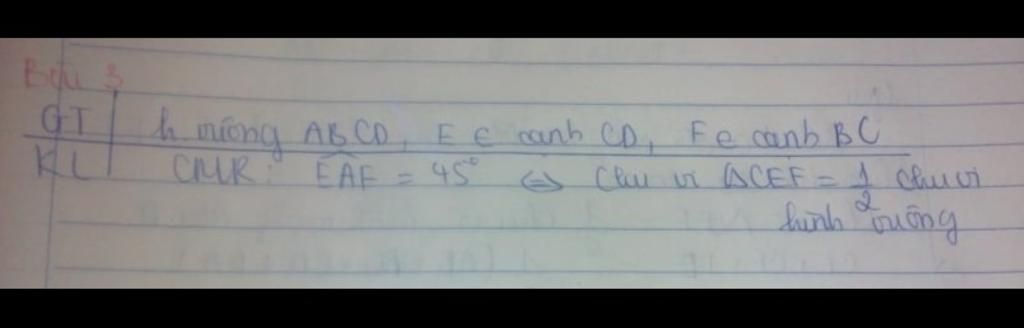 Bài 3
GT | h vuông ABCD, E ∈ cạnh CD, F ∈ cạnh BC
KL | CMR: EAF = 45° ⇔ Chu vi ΔCEF = 1/2 chu vi
hình vuông